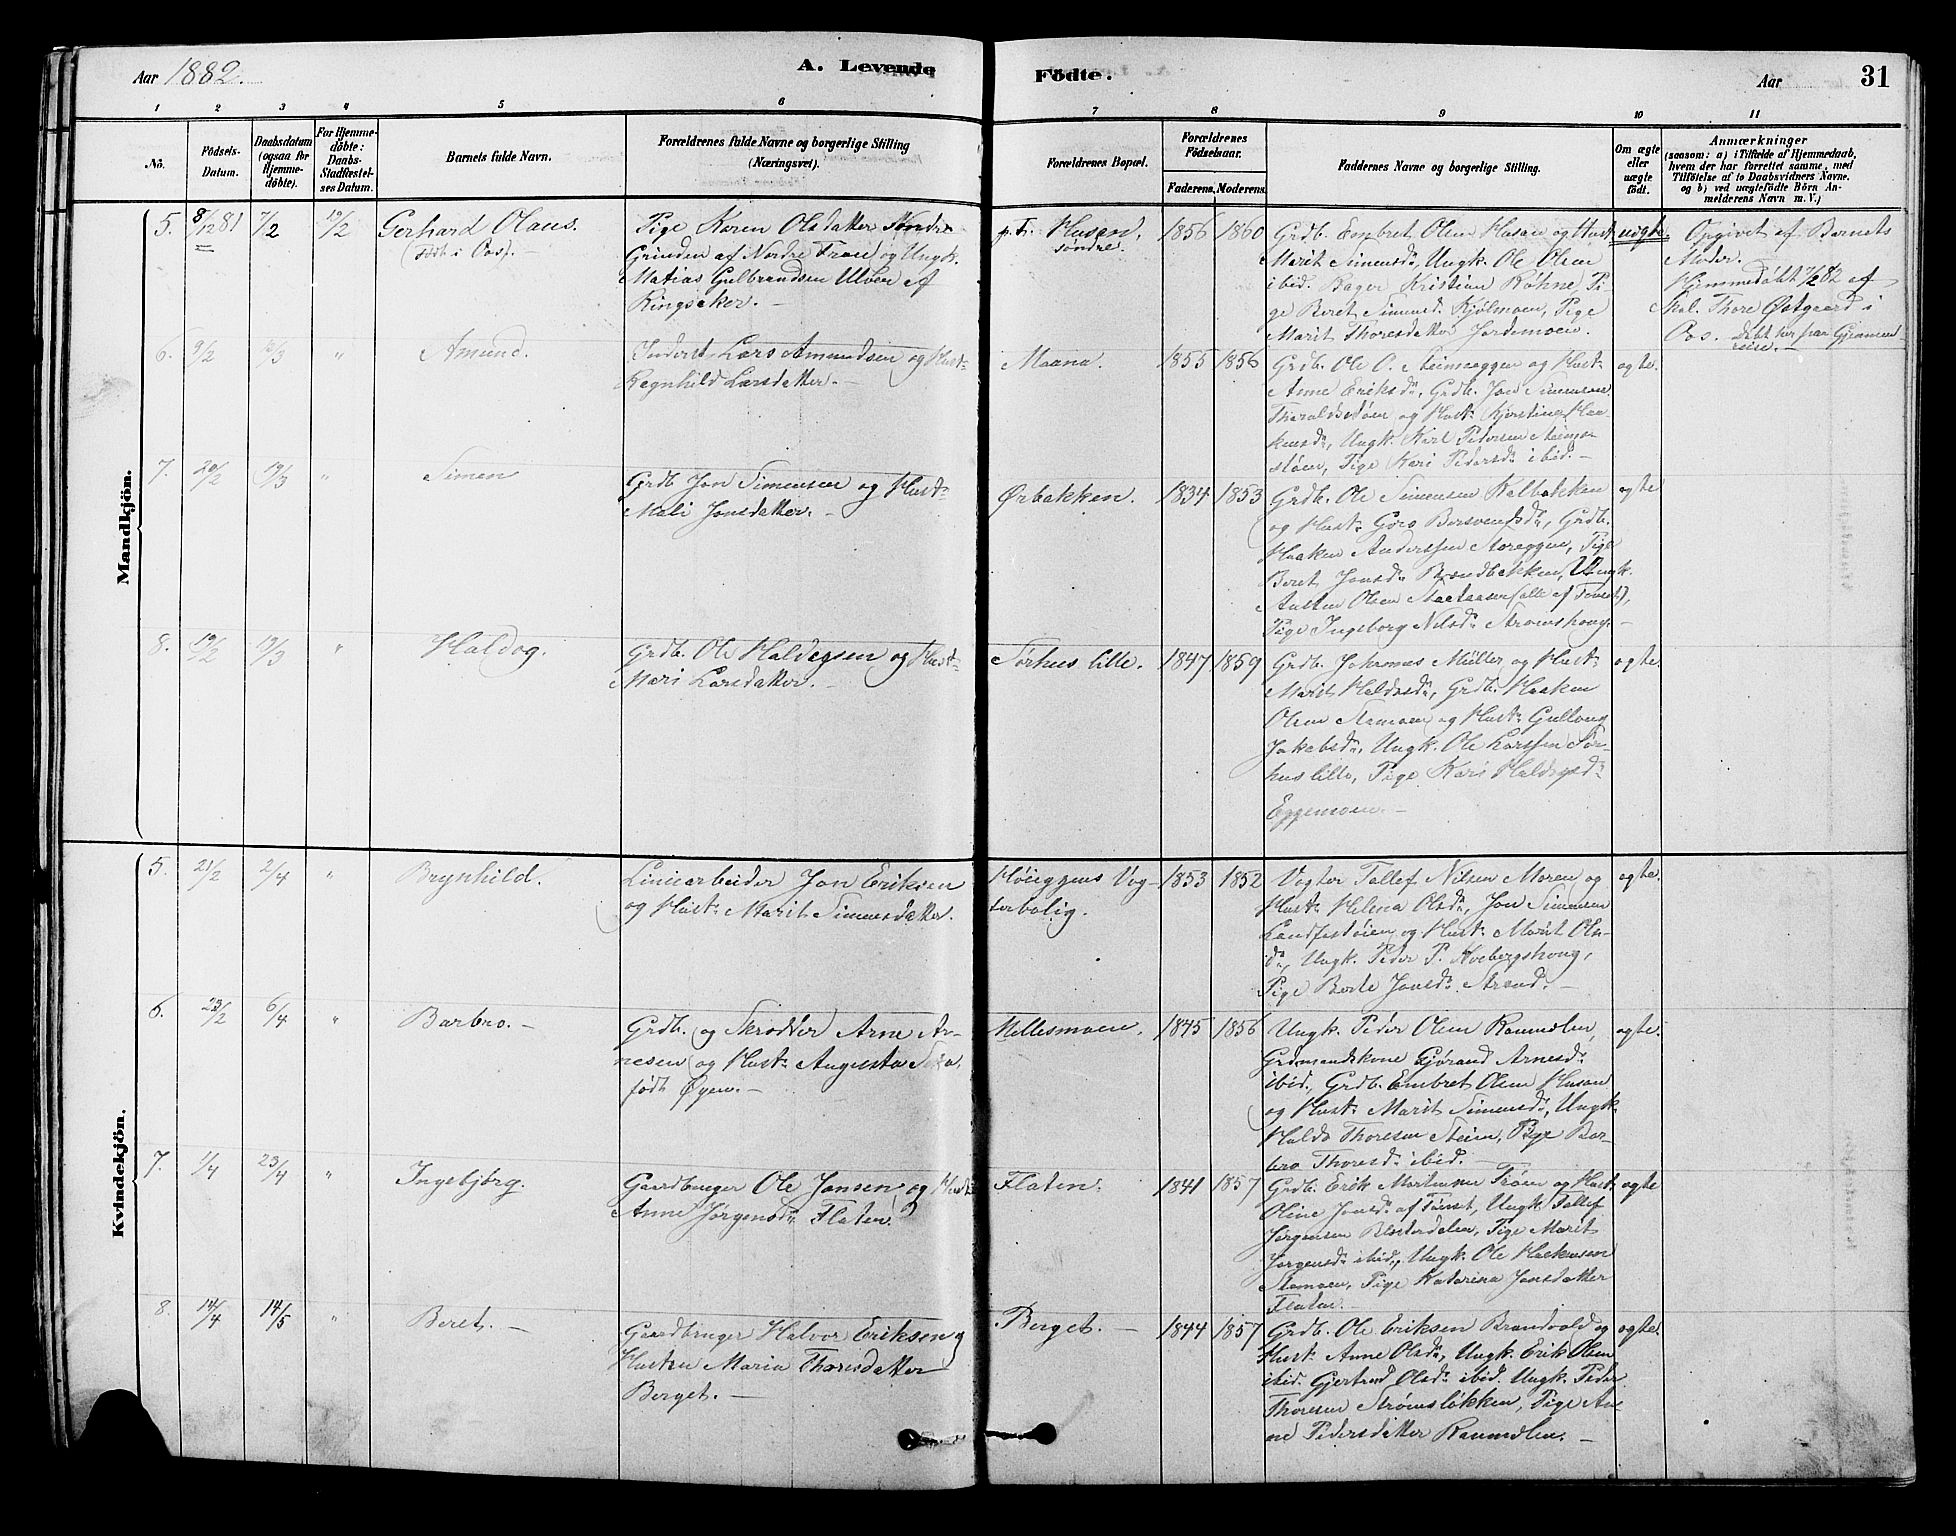 Aar 1882.
A. Levende
Födte.
Aar
31
1 2 3 4 5 6 7 8 9 10 11
No.
Födsels-
Datum.
Daabsdatum
(ogsaa for
Hjemme-
döbte).
For Hjemme-
döbte:
Daabs-
Stadfæstel-
ses Datum.
Barnets fulde Navn.
Forældrenes fulde Navne og borgerlige Stilling
(Næringsvei).
Forældrenes Bopæl.
Forældrenes
Födselsaar.
Faderens. Moderens.
Faddernes Navne og borgerlige Stilling.
Om ægte
eller
uægte
födt.
Anmærkninger
(saasom: a) i Tilfælde af Hjemmedaab,
hvem der har forrettet samme, med
Tilföielse af to Daabsvidners Navne,
og b) ved uægtefödte Börn An-
melderens Navn m. V.)
Mandkjön.
5. 8/12 81 7/2 19/2
Gerhard Olaus.
(Født i Oos). —
Pige Karen Olsdatter Søndre
Grinden af Nordre Tranø og Ungk.
Matias Gulbrandsen Ulven af
Ringsaker. —
p.t. Husan,
søndre.
1856 1860
Grdb. Embret Olsen Husan og Hust.
Marit Simensd., Ungk. Ole Olsen
ibid. Bager Kristian Røhne, Pi-
ge Beret Simensd. Kjølmoen, Pige
Marit Thoresdatter Jordemoen.
uægte
Opgivet af Barnets
Moder. —
Hjemmedøbt 7/2 82 af
Skol. Thore Østgaard i
Oos. Døbt her paa Gjennem
reise. —
6. 9/2 12/3 "
Amund.
Inderst Lars Amundsen og Hust.
Ragnhild Larsdatter. —
Maana.
1855 1856
Grdb. Ole O. Steimoeggen og Hust.
Anne Eriksd., Grdb. Jon Simensen
Tharaldsstøen og Hust. Kjerstine Haa-
kensd., Ungk. Karl Pedersen Steims-
støen, Pige Kari Pedersd. ibid. —
ægte.
7. 20/2 19/3 "
Simen
Grdb. Jon Simensen og Hust.
Mali Jonsdatter. —
Ørbakken.
1834 1853
Grdb. Ole Simensen Kalbakken
og Hust. Goro Bersvendsd., Grdb.
Haaken Anderssen Storeggen, Pige
Beret Jonsd. Brandbakken, Ungk.
Austen Olsen (alle af Tønset),
Pige Ingeborg Nilsd. Strømshoug. —
ægte
8. 19/2 19/3 "
Haldog.
Grdb. Ole Haldogsen og Hust.
Mari Larsdatter. —
Sørhus lille.
1847 1859
Grdb. Johannes Müller og Hust.
Marit Haldosd., Grdb. Haaken
Olsen Stamoen og Hust. Gullaug
Jakobsd., Ungk. Ole Larssen Sør-
hus lille, Pige Kari Haldogsd.
Eggemoen. —
ægte.
Kvindekjön.
5. 21/2 2/4 "
Brynhild.
Liniearbeider Jon Eriksen
og Hust. Marit Simensdatter.
Høieggens Vog-
terbolig.
1853 1852
Vogter Tollef Nilsen Moren og
Hust. Helena Olsd., Jon Simensen
Landfastøien og Hust. Marit Ols-
d., Ungk. Peder P. Kvebergshoug,
Pige Berte Jonsd. Strand. —
ægte.
6. 23/2 6/4 "
Barbro. —
Grdb. og Skrædder Arne Ar-
nesen og Hust. Augusta
født Øyen. —
Millesmoen.
1845 1856
Ungk. Peder Olsen Raumolen,
Grdmandskone Gjørand Arnesd.
ibid., Grdb. Embret Olsen Husan
og Hust. Marit Simensd., Ungk.
Haldo Thoresen Steien, Pige Bar-
bro Thoresd. ibid. —
ægte.
7. 1/4 23/4 "
Ingebjørg.
Gaardbruger Ole Jonsen og Hust.
Anne Jørgensd. Flaten.
Flaten.
1841 1857
Grdb. Erik Mortensen Trøen og Hust.
Oline Jonsd. af Tønset, Ungk. Tollef
Jørgensen Blesterdalen, Pige Marit
Jørgensd. ibid., Ungk. Ole Haakensen
Stamoen, Pige Katarina Jonsdatter
Flaten. —
ægte
8. 14/4 14/5 "
Beret. —
Gaardbruger Halvor Eriksen og
Hustru Maria Thoresdatter
Berget. —
Berget. —
1844 1857
Grdb. Ole Eriksen Brandvold og
Hust. Anne Olsd., Ungk. Erik Olsen
ibid. Gjertrud Olsd. ibid. Ungk. Peder
Thoresen Strømsløkken, Pige An-
ne Pedersdatter Raumolen. —
ægte.